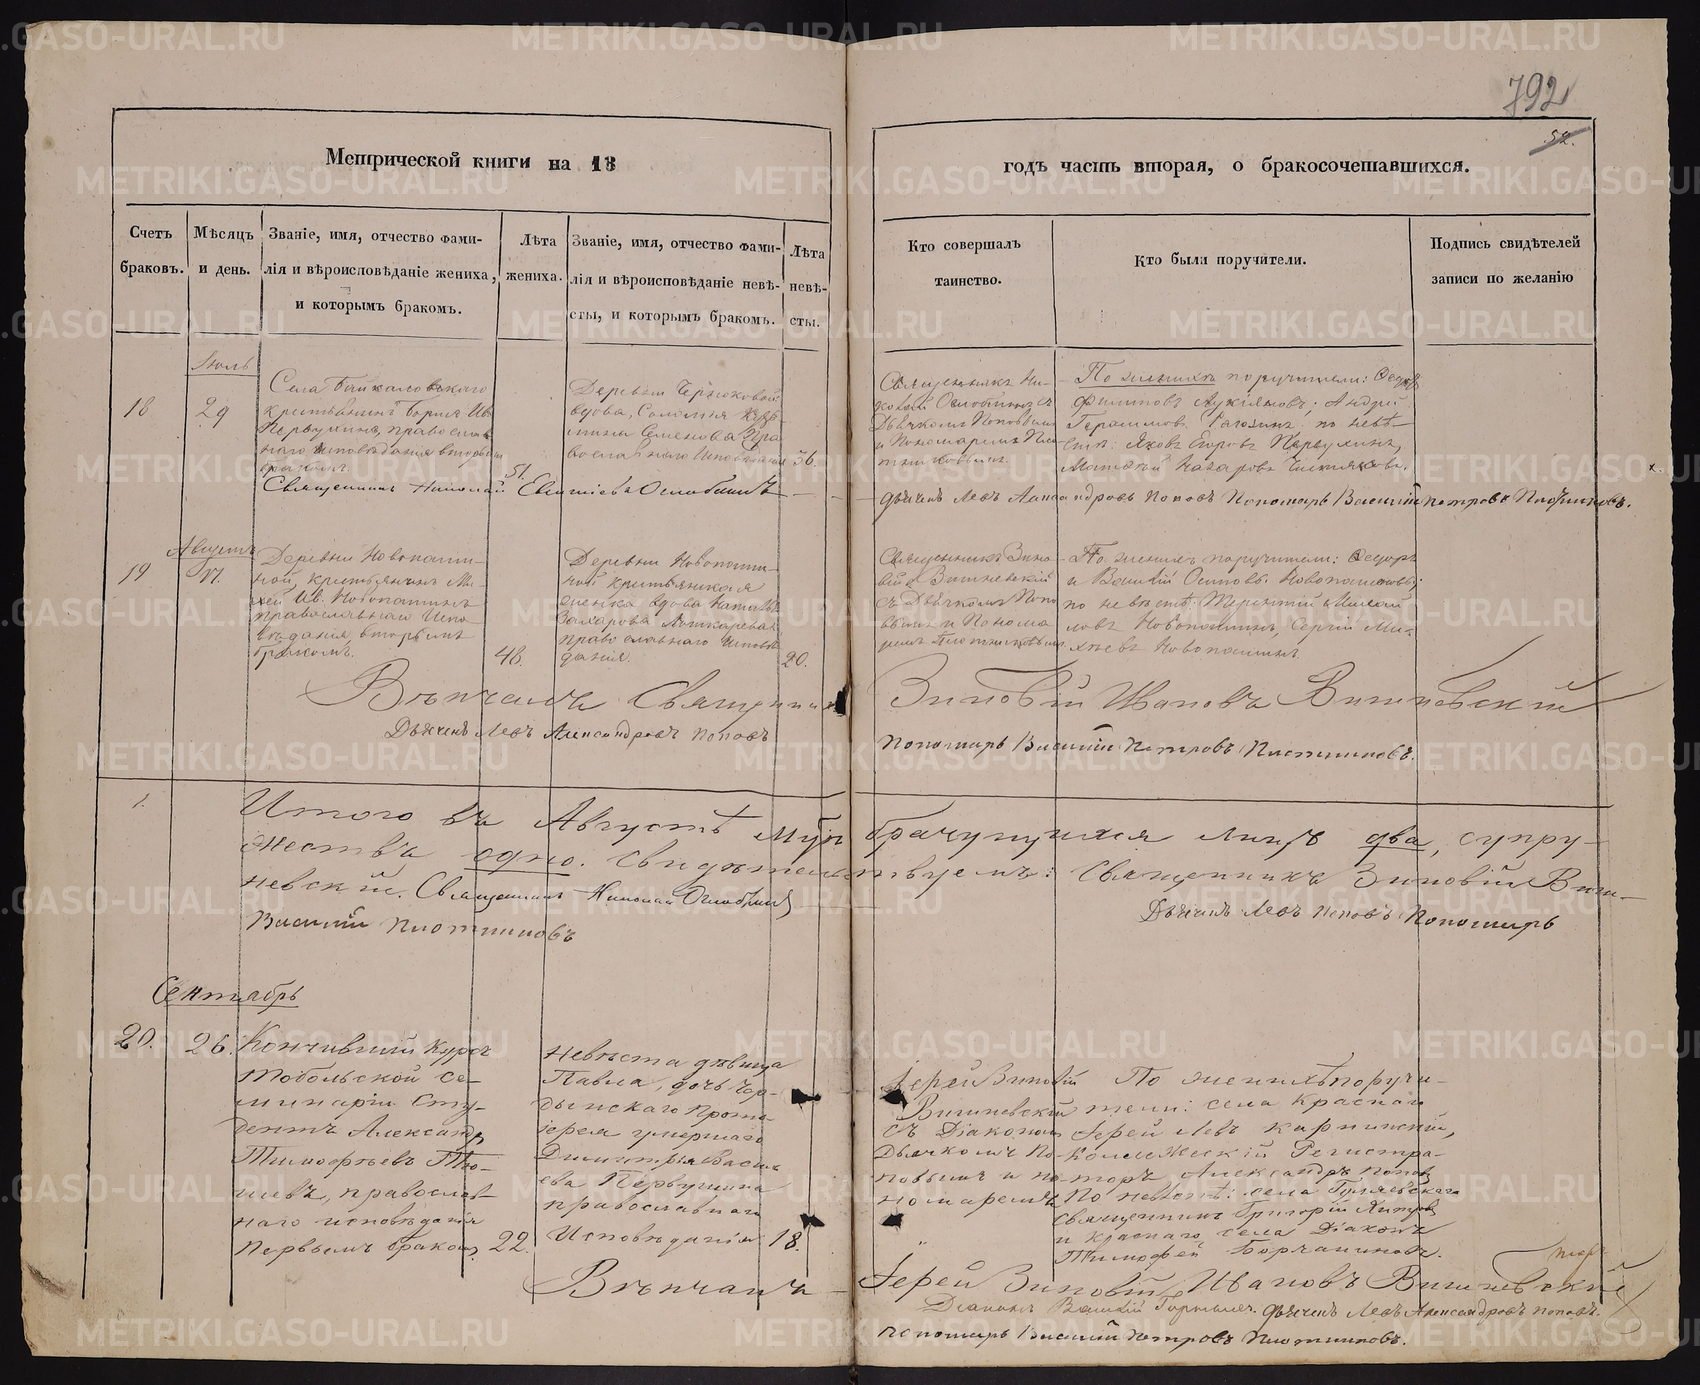 792
52.
Метрической книги на 18
годъ часть вторая, о бракосочетавшихся.
Счетъ браковъ.
Мѣсяцъ и день.
Званіе, имя, отчество фами-
лія и вѣроисповѣданіе жениха,
и которымъ бракомъ.
Лѣта жениха.
Званіе, имя, отчество фами-
лія и вѣроисповѣданіе невѣ-
сты, и которымъ бракомъ.
Лѣта невѣ-
сты.
Кто совершалъ
таинство.
Кто были поручители.
Подпись свидѣтелей
записи по желанію
Іюль
18
29
Села Байкаловскаго
крестьянинъ Борисъ Ив.
Первушинъ, православ-
наго исповѣданія вторымъ
бракомъ.
51.
Деревни
вдова, Соломія
Семенова Пра
вославнаго Исповѣданія
36.
Священникъ Ни-
колай Оглоблинъ съ
Дьячкомъ Поповымъ
и Пономаремъ Пло
тниковымъ.
По женихѣ поручители: Ѳедоръ
Филиповъ ; Андрей
Герасимовъ по невѣ-
стѣ: Яковъ Егоровъ Первушинъ,
Матѳей Назаровъ
Священникъ Николай Евгніевъ Оглоблинъ
дьячекъ Левъ Александровъ Поповъ Пономарь Василій Петровъ Плотниковъ.
19
Августъ
17.
Деревни Новопаши-
ной, крестьянинъ Ми-
хей Ив. Новопашинъ
православнаго Испо-
вѣданія, вторымъ
бракомъ.
48.
Деревни Новопаши-
ной крестьянская
женка вдова
Захарова
православнаго Исповѣ
данія.
20.
Священникъ Зино-
вій Вишневскій
съ Дьячкомъ Попо
вымъ и Понома
ремъ Плотниковымъ
По женихѣ поручители: Ѳедоръ
и Василій Осиповы Новопашины;
по невѣстѣ: Терентій
Новопашинъ, Сергій Ми-
хѣевъ Новопашинъ.
Вѣнчалъ Священникъ Зиновій Ивановъ Вишневскій
Дьячекъ Левъ Александровъ Поповъ
Пономарь Василій Петровъ Плотниковъ.
1.
Итого въ Августѣ м. брачущихся лицъ два, супру-
жествъ одно. Свидѣтельствуемъ: Священникъ Зиновій Виш-
невскій. Священникъ Николай Оглоблинъ
Дьячекъ Левъ Поповъ Пономарь
Василій Плотниковъ
Сентябрь
20.
26.
Кончившій Курсъ
Тобольской Се-
минаріи Сту-
дентъ Александръ
Тимофѣевъ
православ-
наго исповѣданія
Первымъ бракомъ
22.
Невѣста дѣвица
Павла, дочь Чер-
дынскаго Прото-
іерея умершаго
Димитрія Василь
ева Первушина
православнаго
Исповѣданія
18.
Іерей Зиновій
Вишневскій
съ Діакономъ
Дьячкомъ По-
повымъ и по-
номаремъ
По женихѣ поручи-
тели: села Краснаго
Іерей Левъ Карпинскій,
Коллежскій Регистра-
торъ Александръ Поповъ
По невѣстѣ: села Гуляевскаго
священникъ Григорій
и Краснаго села Діаконъ
Тимофей
Вѣнчалъ Іерей Зиновій Ивановъ Вишневскій
Діаконъ Василій дьячекъ Левъ Александровъ Поповъ.
Пономарь Василій Петровъ Плотниковъ.
METRIKI.GASO-URAL.RU